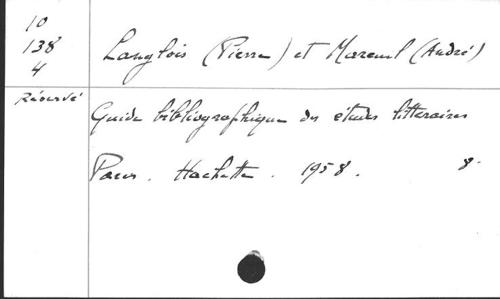 10
138
4
Langlois (Pierre) et Mareuil (André)
Réservé
Guide bibliographique des études littéraires
Paris. Hachette. 1958. 8°